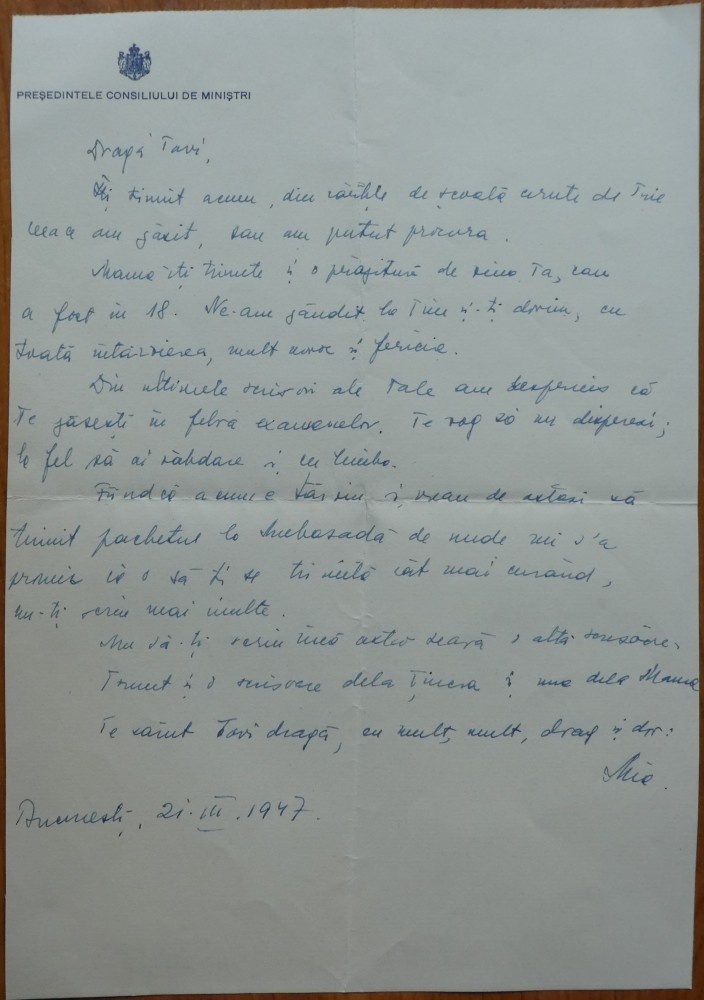 PREŞEDINTELE CONSILIULUI DE MINIŞTRI
Dragă Tovi,
Îţi trimit acum, din cărţile de şcoală cerute de Tine
ceeace am găsit, sau am putut procura.
Mama îţi trimete şi o prăjitură de ziua Ta, care
a fost în 18. Ne-am gândit la Tine şi-ţi dorim, cu
toată întârzierea, mult noroc şi fericire.
Din ultimele scrisori ale Tale am desprins că
Te găseşti în febra examenelor. Te rog să nu disperezi;
la fel să ai răbdare şi cu limba.
Fiindcă acum e târziu şi vreau de astăzi să
trimit pachetul la Ambasadă de unde mi s'a
promis că o să ţi se trimită cât mai curând,
nu-ţi scriu mai multe.
să-ţi scriu încă astă seară o altă scrisoare.
Trimit şi o scrisoare dela şi una dela Mama
Te sărut Tovi dragă, cu mult, mult, drag şi dor:
Mia.
Bucureşti, 21.III.1947.